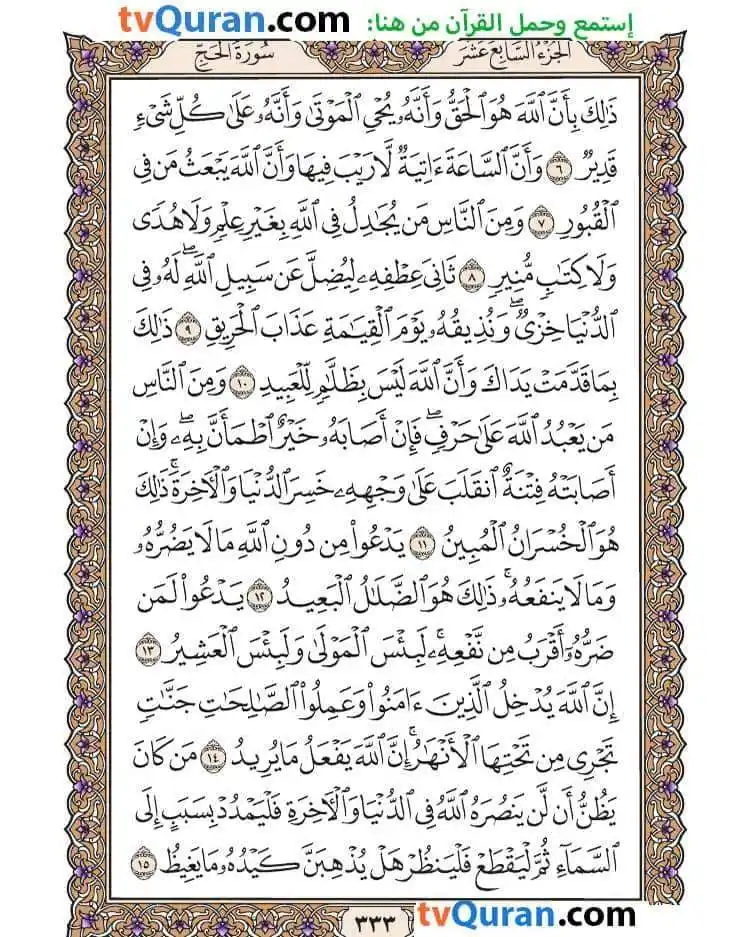 إستمع وحمل القرآن من هنا: tvQuran.com
الجزء السابع عشر
سورة الحج
ذَٰلِكَ بِأَنَّ ٱللَّهَ هُوَ ٱلْحَقُّ وَأَنَّهُۥ يُحْيِ ٱلْمَوْتَىٰ وَأَنَّهُۥ عَلَىٰ كُلِّ شَىْءٍ
قَدِيرٌ ٦ وَأَنَّ ٱلسَّاعَةَ ءَاتِيَةٌ لَّا رَيْبَ فِيهَا وَأَنَّ ٱللَّهَ يَبْعَثُ مَن فِى
ٱلْقُبُورِ ٧ وَمِنَ ٱلنَّاسِ مَن يُجَٰدِلُ فِى ٱللَّهِ بِغَيْرِ عِلْمٍ وَلَا هُدًى
وَلَا كِتَٰبٍ مُّنِيرٍ ٨ ثَانِىَ عِطْفِهِۦ لِيُضِلَّ عَن سَبِيلِ ٱللَّهِ ۖ لَهُۥ فِى
ٱلدُّنْيَا خِزْىٌ ۖ وَنُذِيقُهُۥ يَوْمَ ٱلْقِيَٰمَةِ عَذَابَ ٱلْحَرِيقِ ٩ ذَٰلِكَ
بِمَا قَدَّمَتْ يَدَاكَ وَأَنَّ ٱللَّهَ لَيْسَ بِظَلَّٰمٍ لِّلْعَبِيدِ ١٠ وَمِنَ ٱلنَّاسِ
مَن يَعْبُدُ ٱللَّهَ عَلَىٰ حَرْفٍ ۖ فَإِنْ أَصَابَهُۥ خَيْرٌ ٱطْمَأَنَّ بِهِۦ ۖ وَإِنْ
أَصَابَتْهُ فِتْنَةٌ ٱنقَلَبَ عَلَىٰ وَجْهِهِۦ خَسِرَ ٱلدُّنْيَا وَٱلْءَاخِرَةَ ۚ ذَٰلِكَ
هُوَ ٱلْخُسْرَانُ ٱلْمُبِينُ ١١ يَدْعُوا۟ مِن دُونِ ٱللَّهِ مَا لَا يَضُرُّهُۥ
وَمَا لَا يَنفَعُهُۥ ۚ ذَٰلِكَ هُوَ ٱلضَّلَٰلُ ٱلْبَعِيدُ ١٢ يَدْعُوا۟ لَمَن
ضَرُّهُۥٓ أَقْرَبُ مِن نَّفْعِهِۦ ۚ لَبِئْسَ ٱلْمَوْلَىٰ وَلَبِئْسَ ٱلْعَشِيرُ ١٣
إِنَّ ٱللَّهَ يُدْخِلُ ٱلَّذِينَ ءَامَنُوا۟ وَعَمِلُوا۟ ٱلصَّٰلِحَٰتِ جَنَّٰتٍ
تَجْرِى مِن تَحْتِهَا ٱلْأَنْهَٰرُ ۚ إِنَّ ٱللَّهَ يَفْعَلُ مَا يُرِيدُ ١٤ مَن كَانَ
يَظُنُّ أَن لَّن يَنصُرَهُ ٱللَّهُ فِى ٱلدُّنْيَا وَٱلْءَاخِرَةِ فَلْيَمْدُدْ بِسَبَبٍ إِلَى
ٱلسَّمَآءِ ثُمَّ لْيَقْطَعْ فَلْيَنظُرْ هَلْ يُذْهِبَنَّ كَيْدُهُۥ مَا يَغِيظُ ١٥
٣٣٣ tvQuran.com